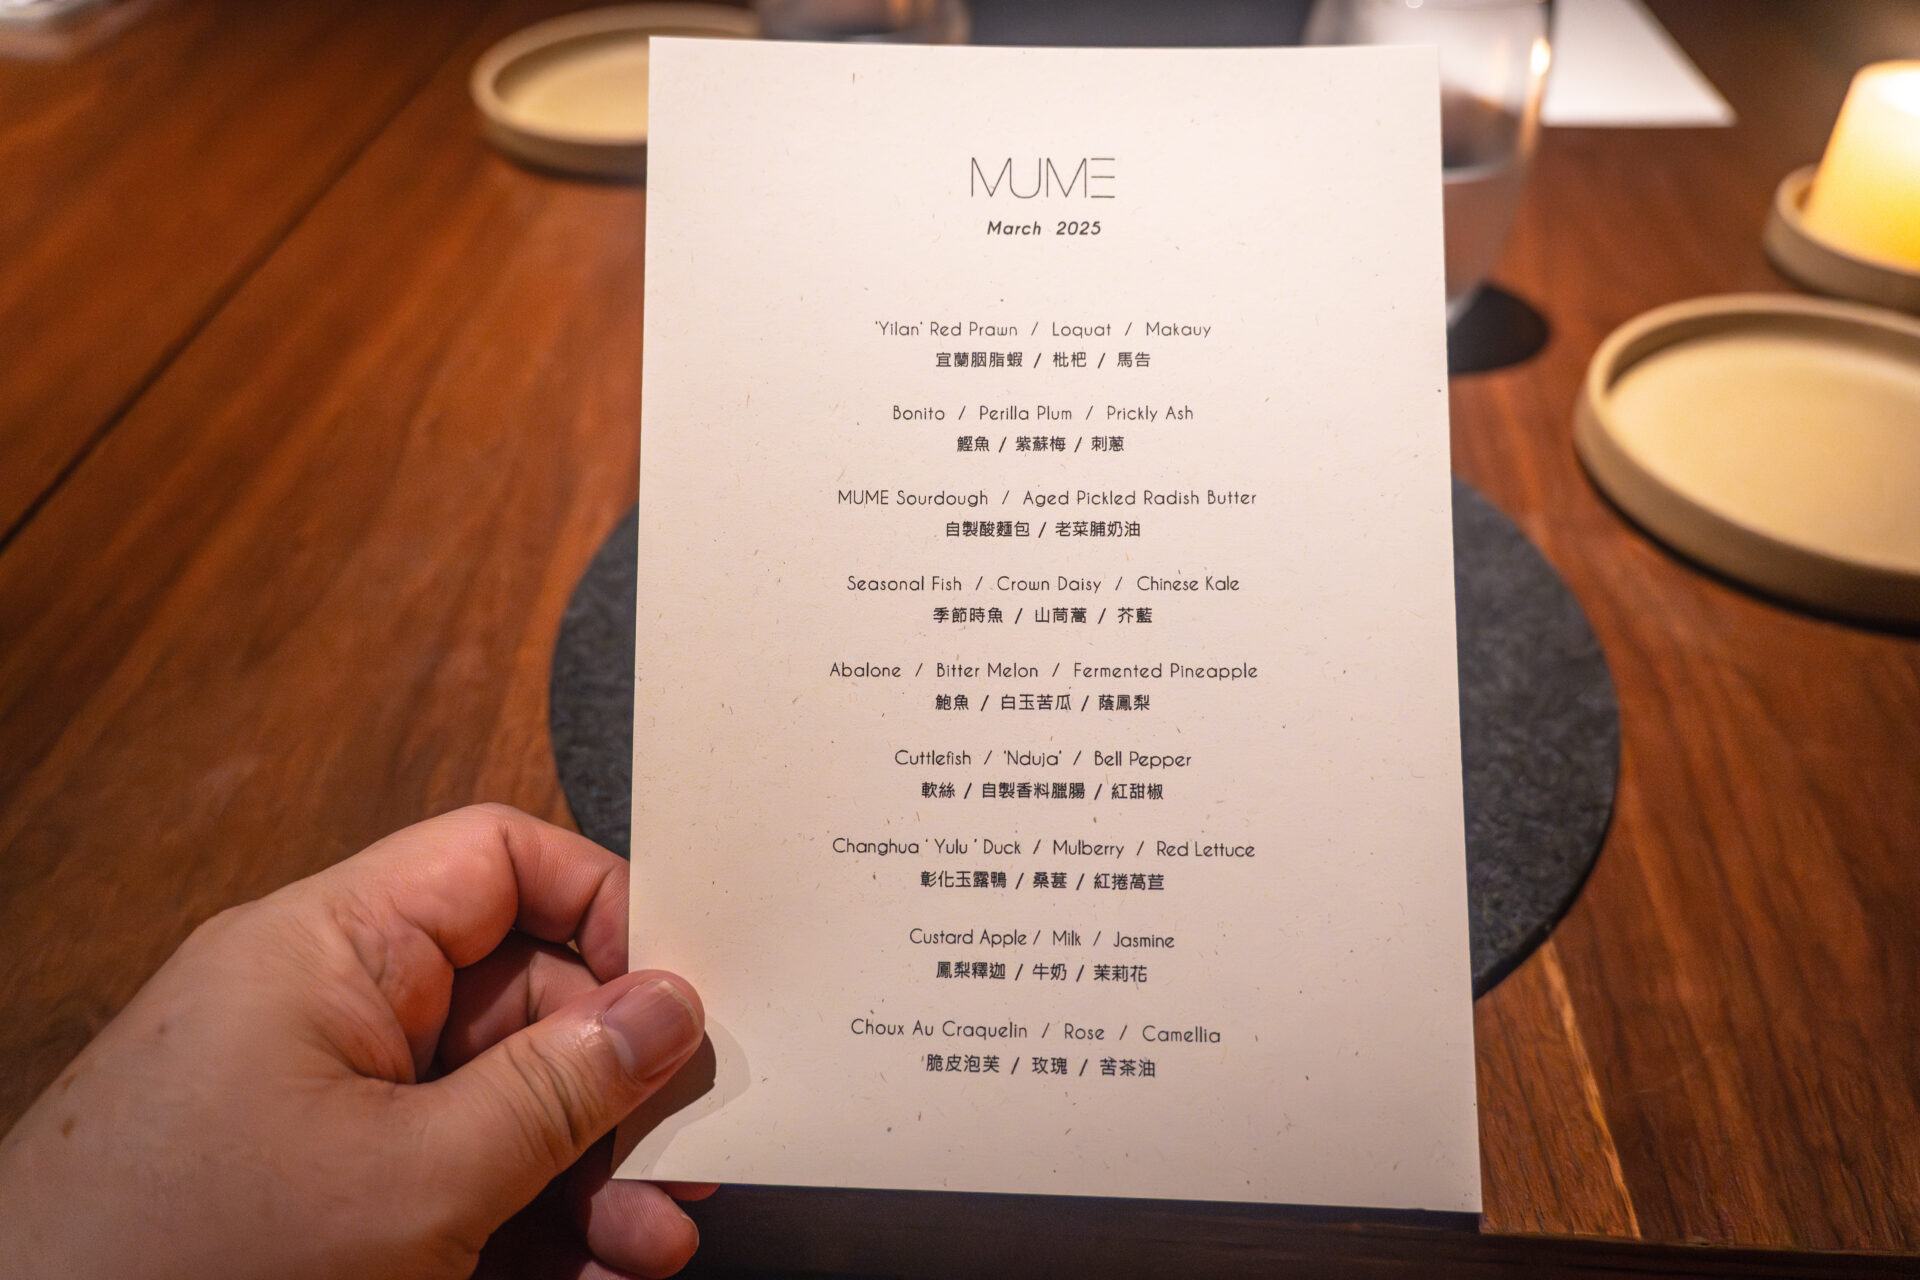 MUME
March 2025
'Yilan' Red Prawn / Loquat / Makauy
宜蘭胭脂蝦 / 枇杷 / 馬告
Bonito / Perilla Plum / Prickly Ash
鰹魚 / 紫蘇梅 / 刺蔥
MUME Sourdough / Aged Pickled Radish Butter
自製酸麵包 / 老菜脯奶油
Seasonal Fish / Crown Daisy / Chinese Kale
季節時魚 / 山茼蒿 / 芥藍
Abalone / Bitter Melon / Fermented Pineapple
鮑魚 / 白玉苦瓜 / 蔭鳳梨
Cuttlefish / 'Nduja' / Bell Pepper
軟絲 / 自製香料臘腸 / 紅甜椒
Changhua ' Yulu ' Duck / Mulberry / Red Lettuce
彰化玉露鴨 / 桑葚 / 紅捲萵苣
Custard Apple / Milk / Jasmine
鳳梨釋迦 / 牛奶 / 茉莉花
Choux Au Craquelin / Rose / Camellia
脆皮泡芙 / 玫瑰 / 苦茶油